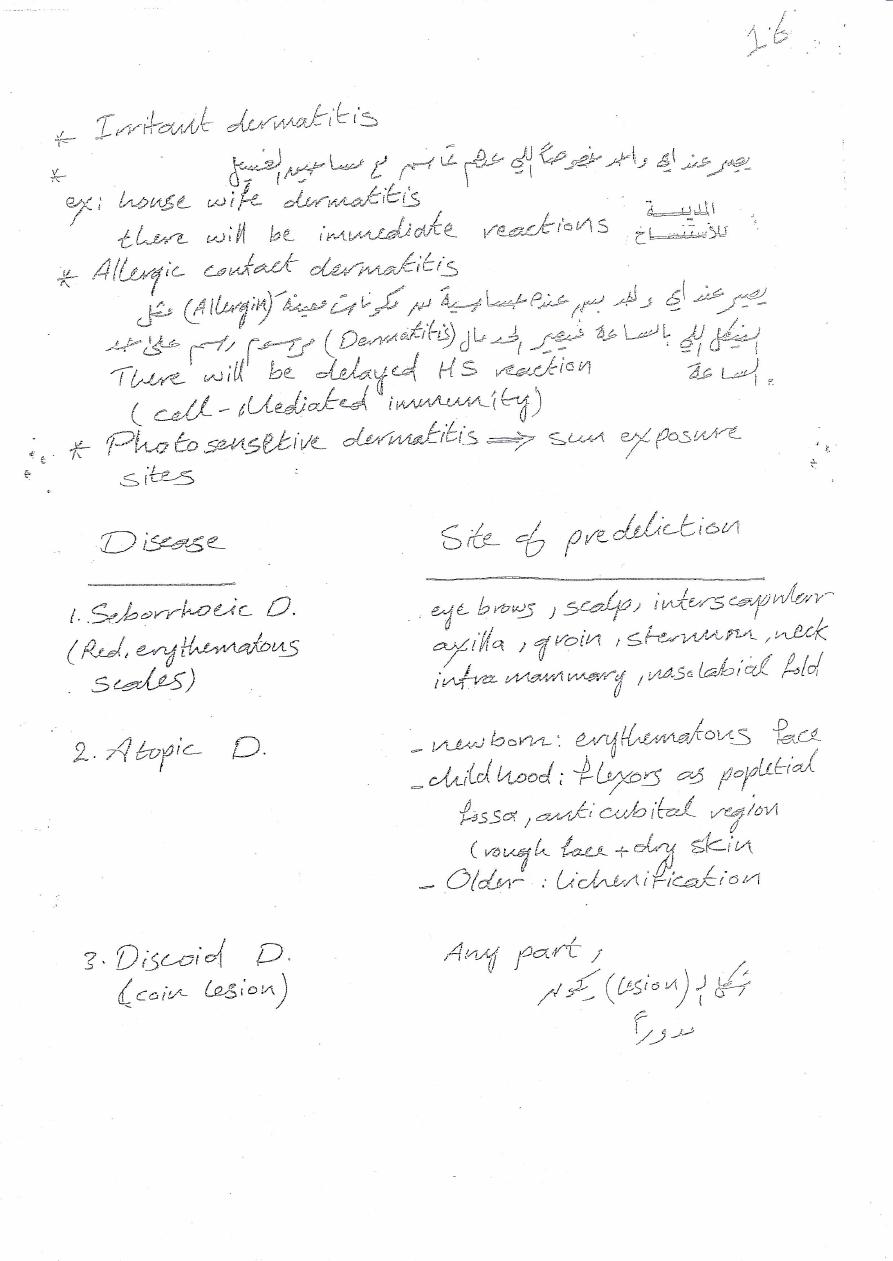 16
* Irritant dermatitis
* يصير عند اي واحد خصوصاً اللي عندهم تماس مع مساحيق الغسيل
ex: house wife dermatitis
المدينة
there will be immediate reactions
للأستنساخ
* Allergic contact dermatitis
يصير عند اي واحد بس عنده حساسية من مكونات معينة (Allergin) مثل
النيكل اللي بالساعة فيصير (Dermatitis) مرسوم رسم على حد
الساعة.
There will be delayed HS reaction
(cell-Mediated immunity)
* Photosensetive dermatitis ⇒ sun exposure
sites
Disease Site of predeliction
1. Seborrhoeic D. eye brows, scalp, interscapular
(Red, erythematous axilla, groin, sternum, neck
scales) infra mammary, nasolabial fold
2. Atopic D. - newborn: erythematous face
- childhood: flexors as popletial
fossa, anticubital region
(rough face + dry skin
- Older: lichenification
3. Discoid D. Any part,
(coin lesion) شكل الـ (lesion) يكون
مدوراً